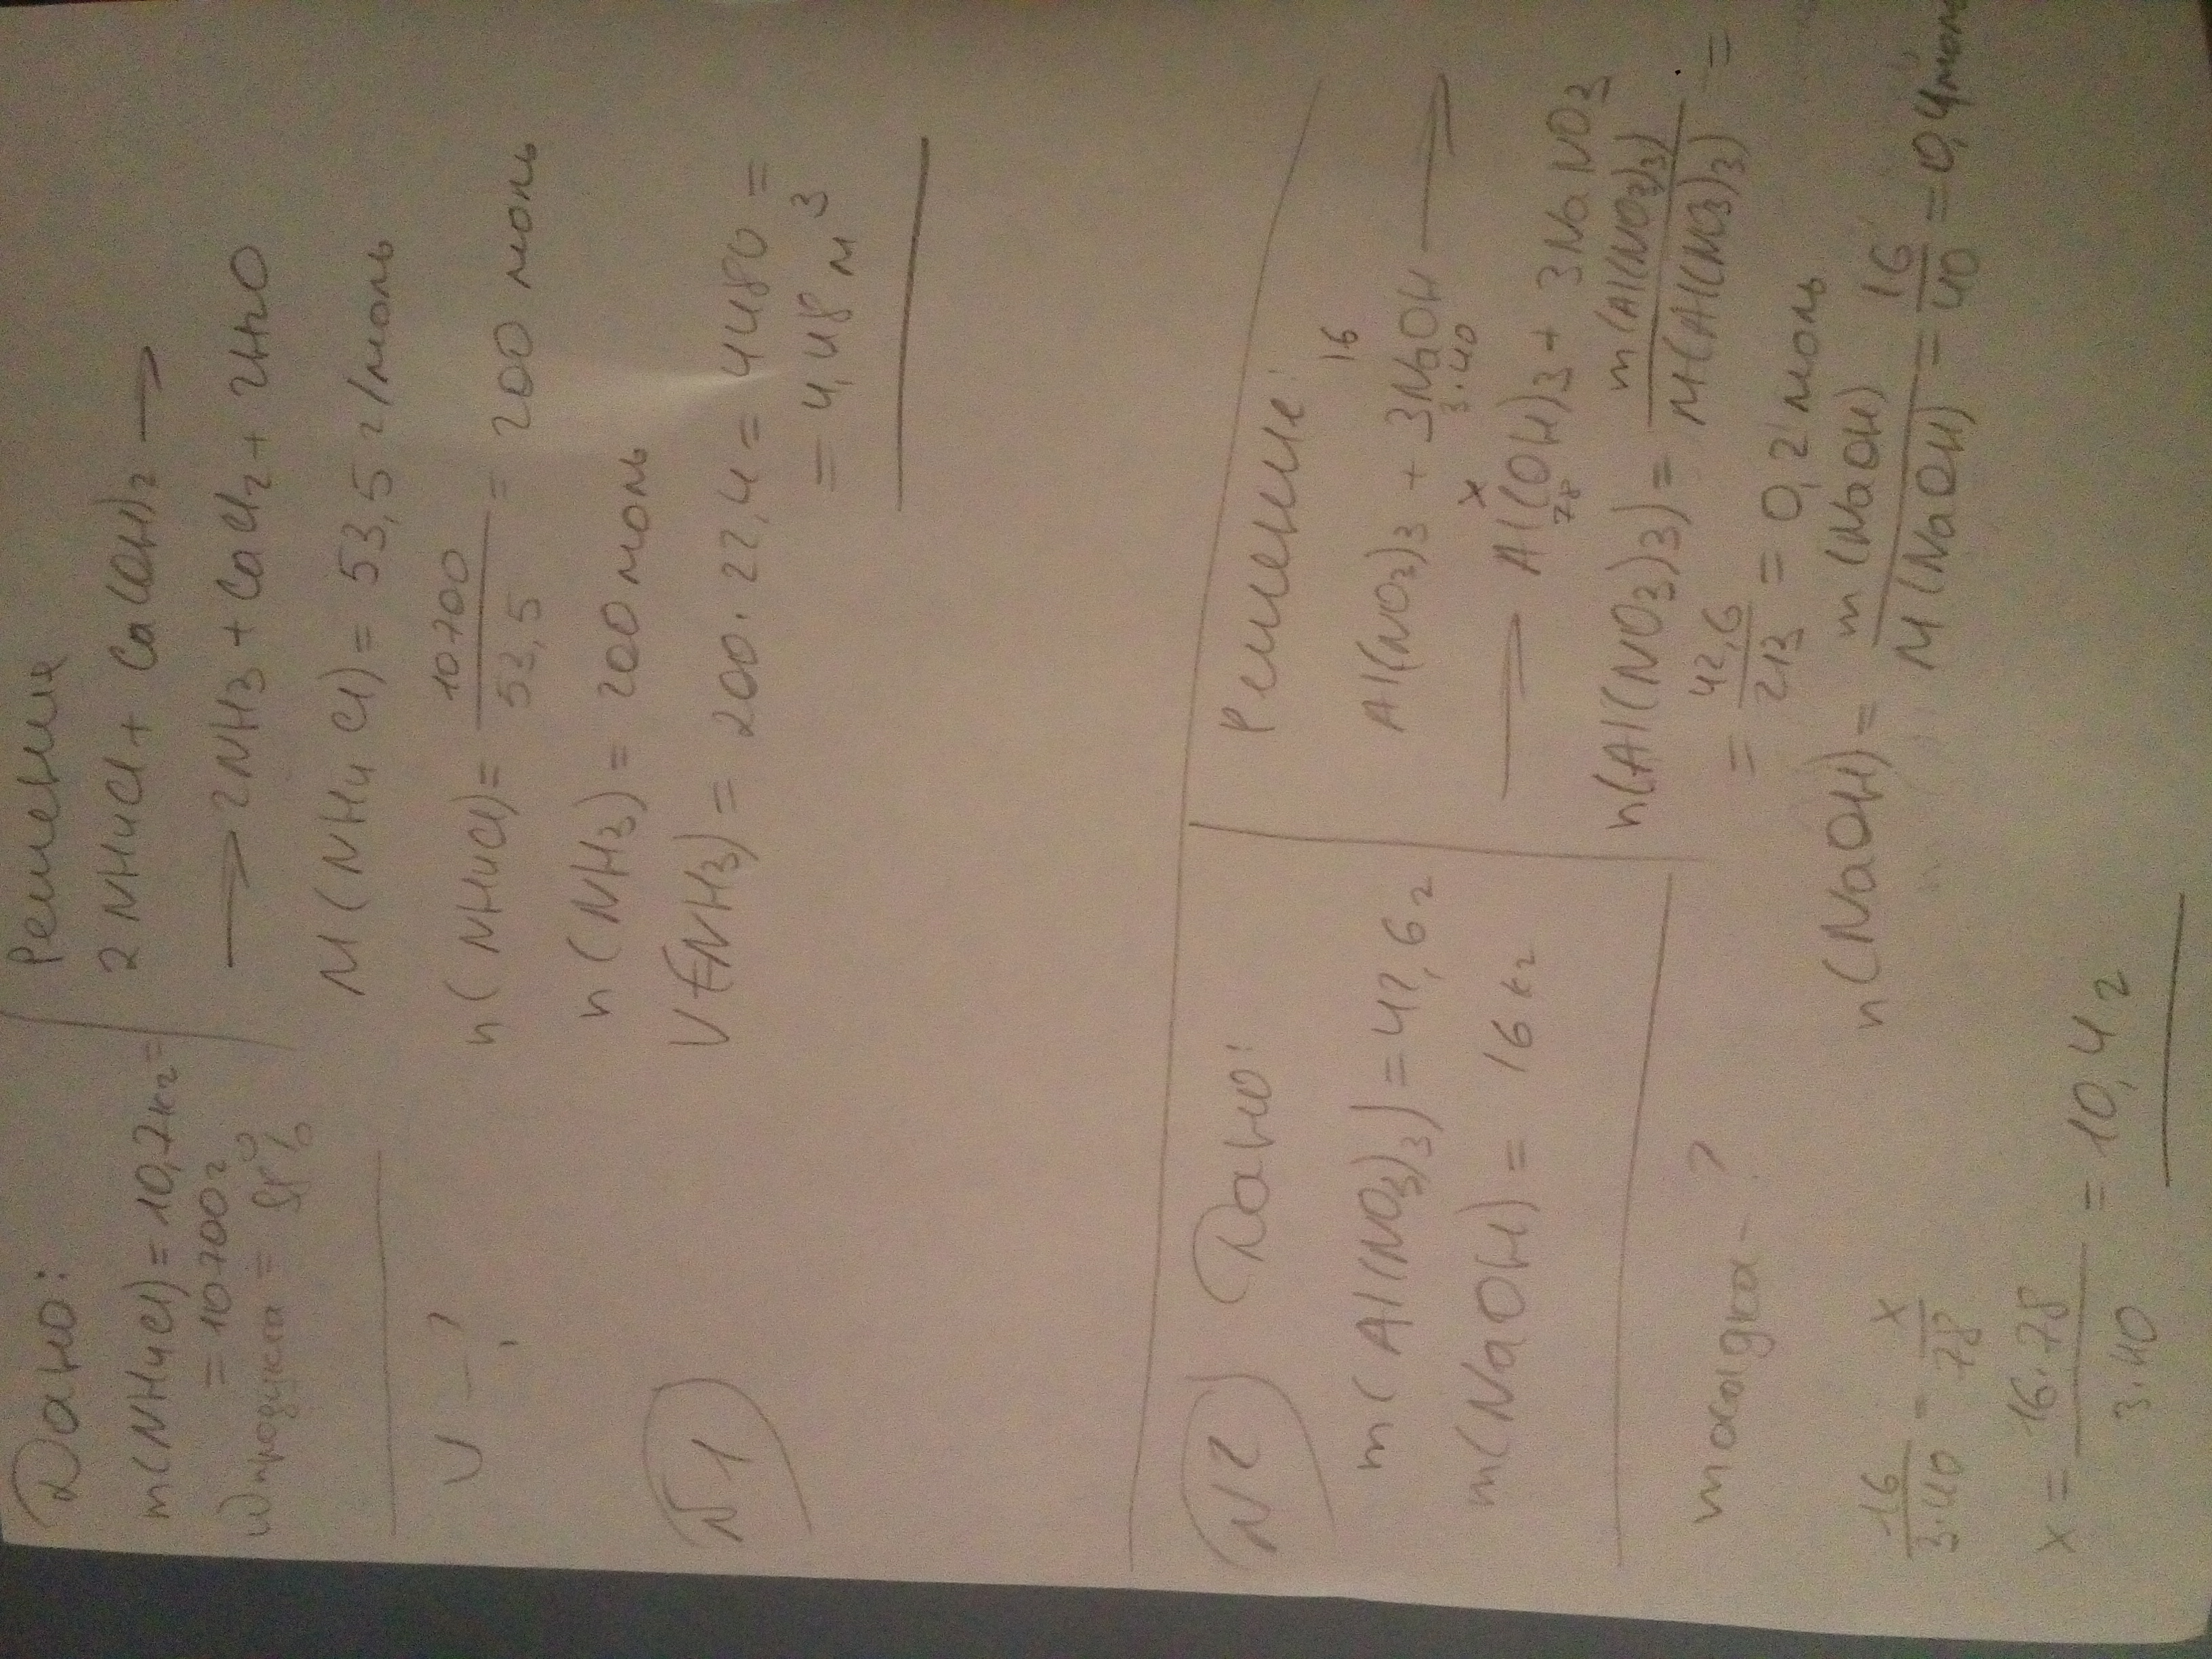 Дано:
m(NH4Cl) = 10,7кг =
= 10700г
Wпродукта = 98%
V - ?
№1
Решение
2NH4Cl + Ca(OH)2 →
→ 2NH3 + CaCl2 + 2H2O
M(NH4Cl) = 53,5 г/моль
n(NH4Cl) = 10700/53,5 = 200 моль
n(NH3) = 200 моль
V(NH3) = 200 · 22,4 = 4480 =
= 4,48 м3
№2
Дано:
m(Al(NO3)3) = 42,6г
m(NaOH) = 16кг
mосадка - ?
Решение:
16
Al(NO3)3 + 3NaOH →
3·40
x
→ Al(OH)3 + 3NaNO3
78
n(Al(NO3)3) = m(Al(NO3)3)/M(Al(NO3)3) =
= 42,6/213 = 0,2 моль
n(NaOH) = m(NaOH)/M(NaOH) = 16/40 = 0,4моль
16/3·40 = x/78
x = 16·78/3·40 = 10,4г